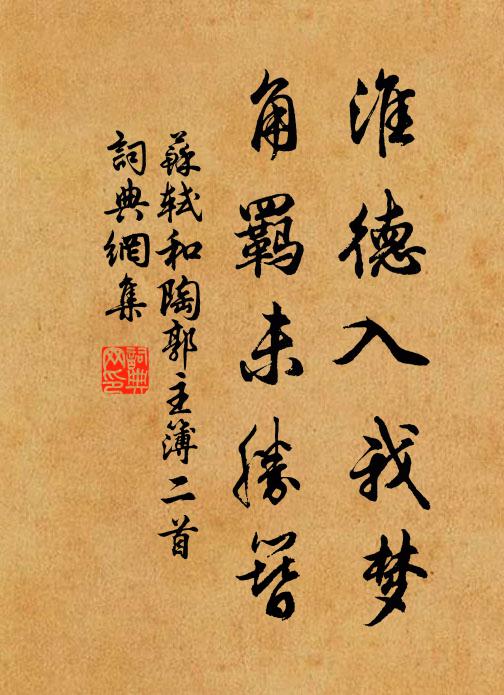 淮德入我梦
角羈未勝簪
蘇軾和陶郭主簿二首
詞典網集
詞典
网印